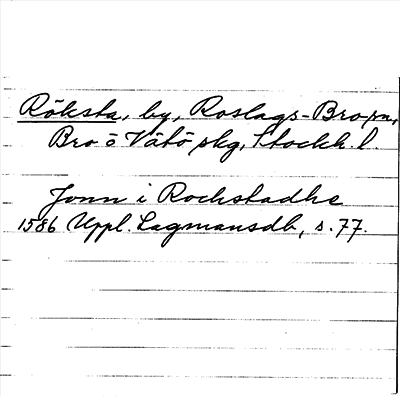 Röksta, by, Roslags-Bro sn,
Bro o Vätö skg, Stockh. l.
Jonn i Rochstadhe
1586 Uppl. Lagmansdb, s. 77.